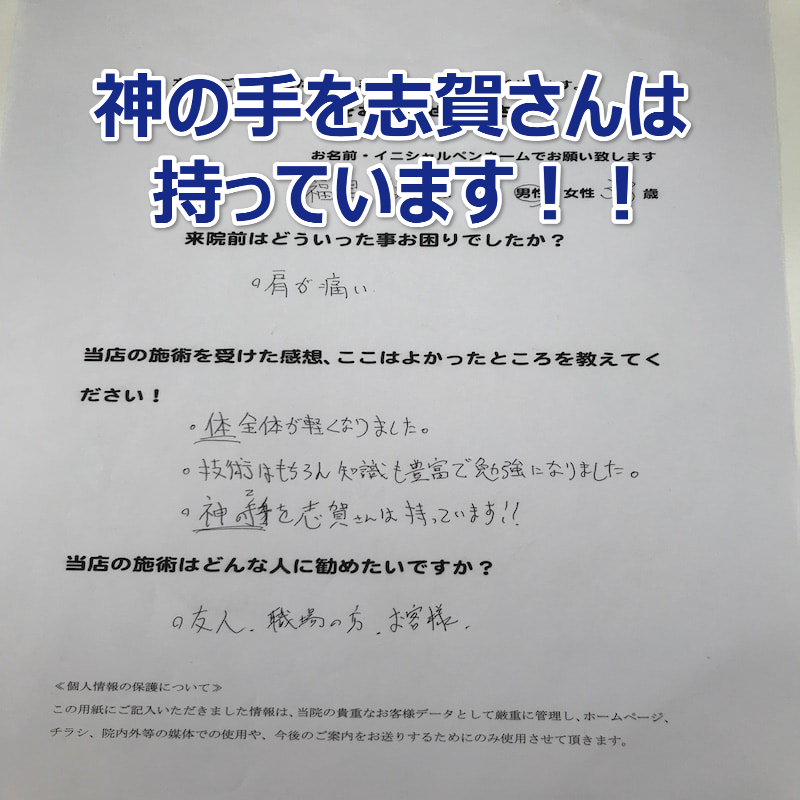 神の手を志賀さんは
持っています！！
お名前・イニシャルペンネームでお願い致します
男性 女性 歳
来院前はどういった事お困りでしたか？
○肩が痛い
当店の施術を受けた感想、ここはよかったところを教えてく
ださい！
・体全体が軽くなりました。
・技術はもちろん知識も豊富で勉強になりました。
○神の手を志賀さんは持っています!!
当店の施術はどんな人に勧めたいですか？
○友人、職場の方、お客様、
≪個人情報の保護について≫
この用紙にご記入いただきました情報は、当院の貴重なお客様データとして厳重に管理し、ホームページ、
チラシ、院内外等の媒体での使用や、今後のご案内をお送りするためにのみ使用させて頂きます。